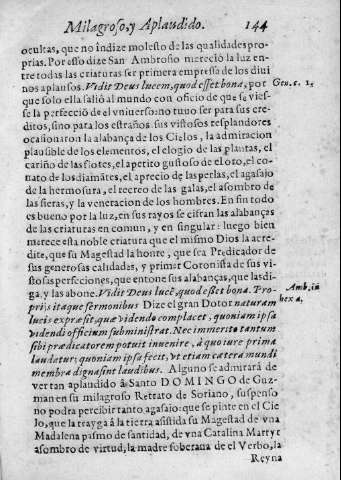 Milagroso, y Aplaudido. 144
ocultas, que no indize molesto de las qualidades pro-
prias. Por esso dize San Ambrosio mereciò la luz en-
tre todas las criaturas ser primera empressa de los divi
nos aplausos. Vidit Deus lucem, quod esset bona, por
Gen. c. 1.
que solo ella saliò al mundo con oficio de que se vies-
se la perfecciõ de el vniuerso: no tuuo ser para sus cre-
ditos, sino para los estraños. sus vistosos resplandores
ocasionaron la alabança de los Cielos, la admiracion
plausible de los elementos, el elogio de las plantas, el
cariño de las flores, el apetito gustoso de el oro, el co-
nato de los diamãtes, el aprecio de las perlas, el agasajo
de la hermosura, el recreo de las galas, el asombro de
las fieras, y la veneracion de los hombres. En fin todo
es bueno por la luz, en sus rayos se cifran las alabanças
de las criaturas en comun, y en singular: luego bien
merece esta noble criatura que el mismo Dios la acre-
dite, que su Magestad la honre, que sea Predicador de
sus generosas calidades, y primer Coronista de sus vi-
stosas perfecciones, que entone sus alabanças, que las di-
ga, y las abone. Vidit Deus lucẽ, quod esset bona. Pro-
Amb. in
prijs itaque sermonibus Dize el gran Dotor naturam
hexa.
lucis expressit, quæ videndo complacet, quoniam ipsa
videndi officium subministrat. Nec immerito tantum
sibi prædicatorem potuit inuenire, à quo iure prima
laudatur; quoniam ipsa fecit, vt etiam cætera mundi
membra digna sint laudibus. Alguno se admirarà de
ver tan aplaudido â Santo DOMINGO de Guz-
man en su milagroso Retrato de Soriano, suspenso
no podra percibir tanto agasajo: que se pinte en el Cie
lo, que la trayga â la tierra asistida su Magestad de vna
Madalena pasmo de santidad, de vna Catalina Martyr
asombro de virtud, la madre soberana de el Verbo, la
Reyna